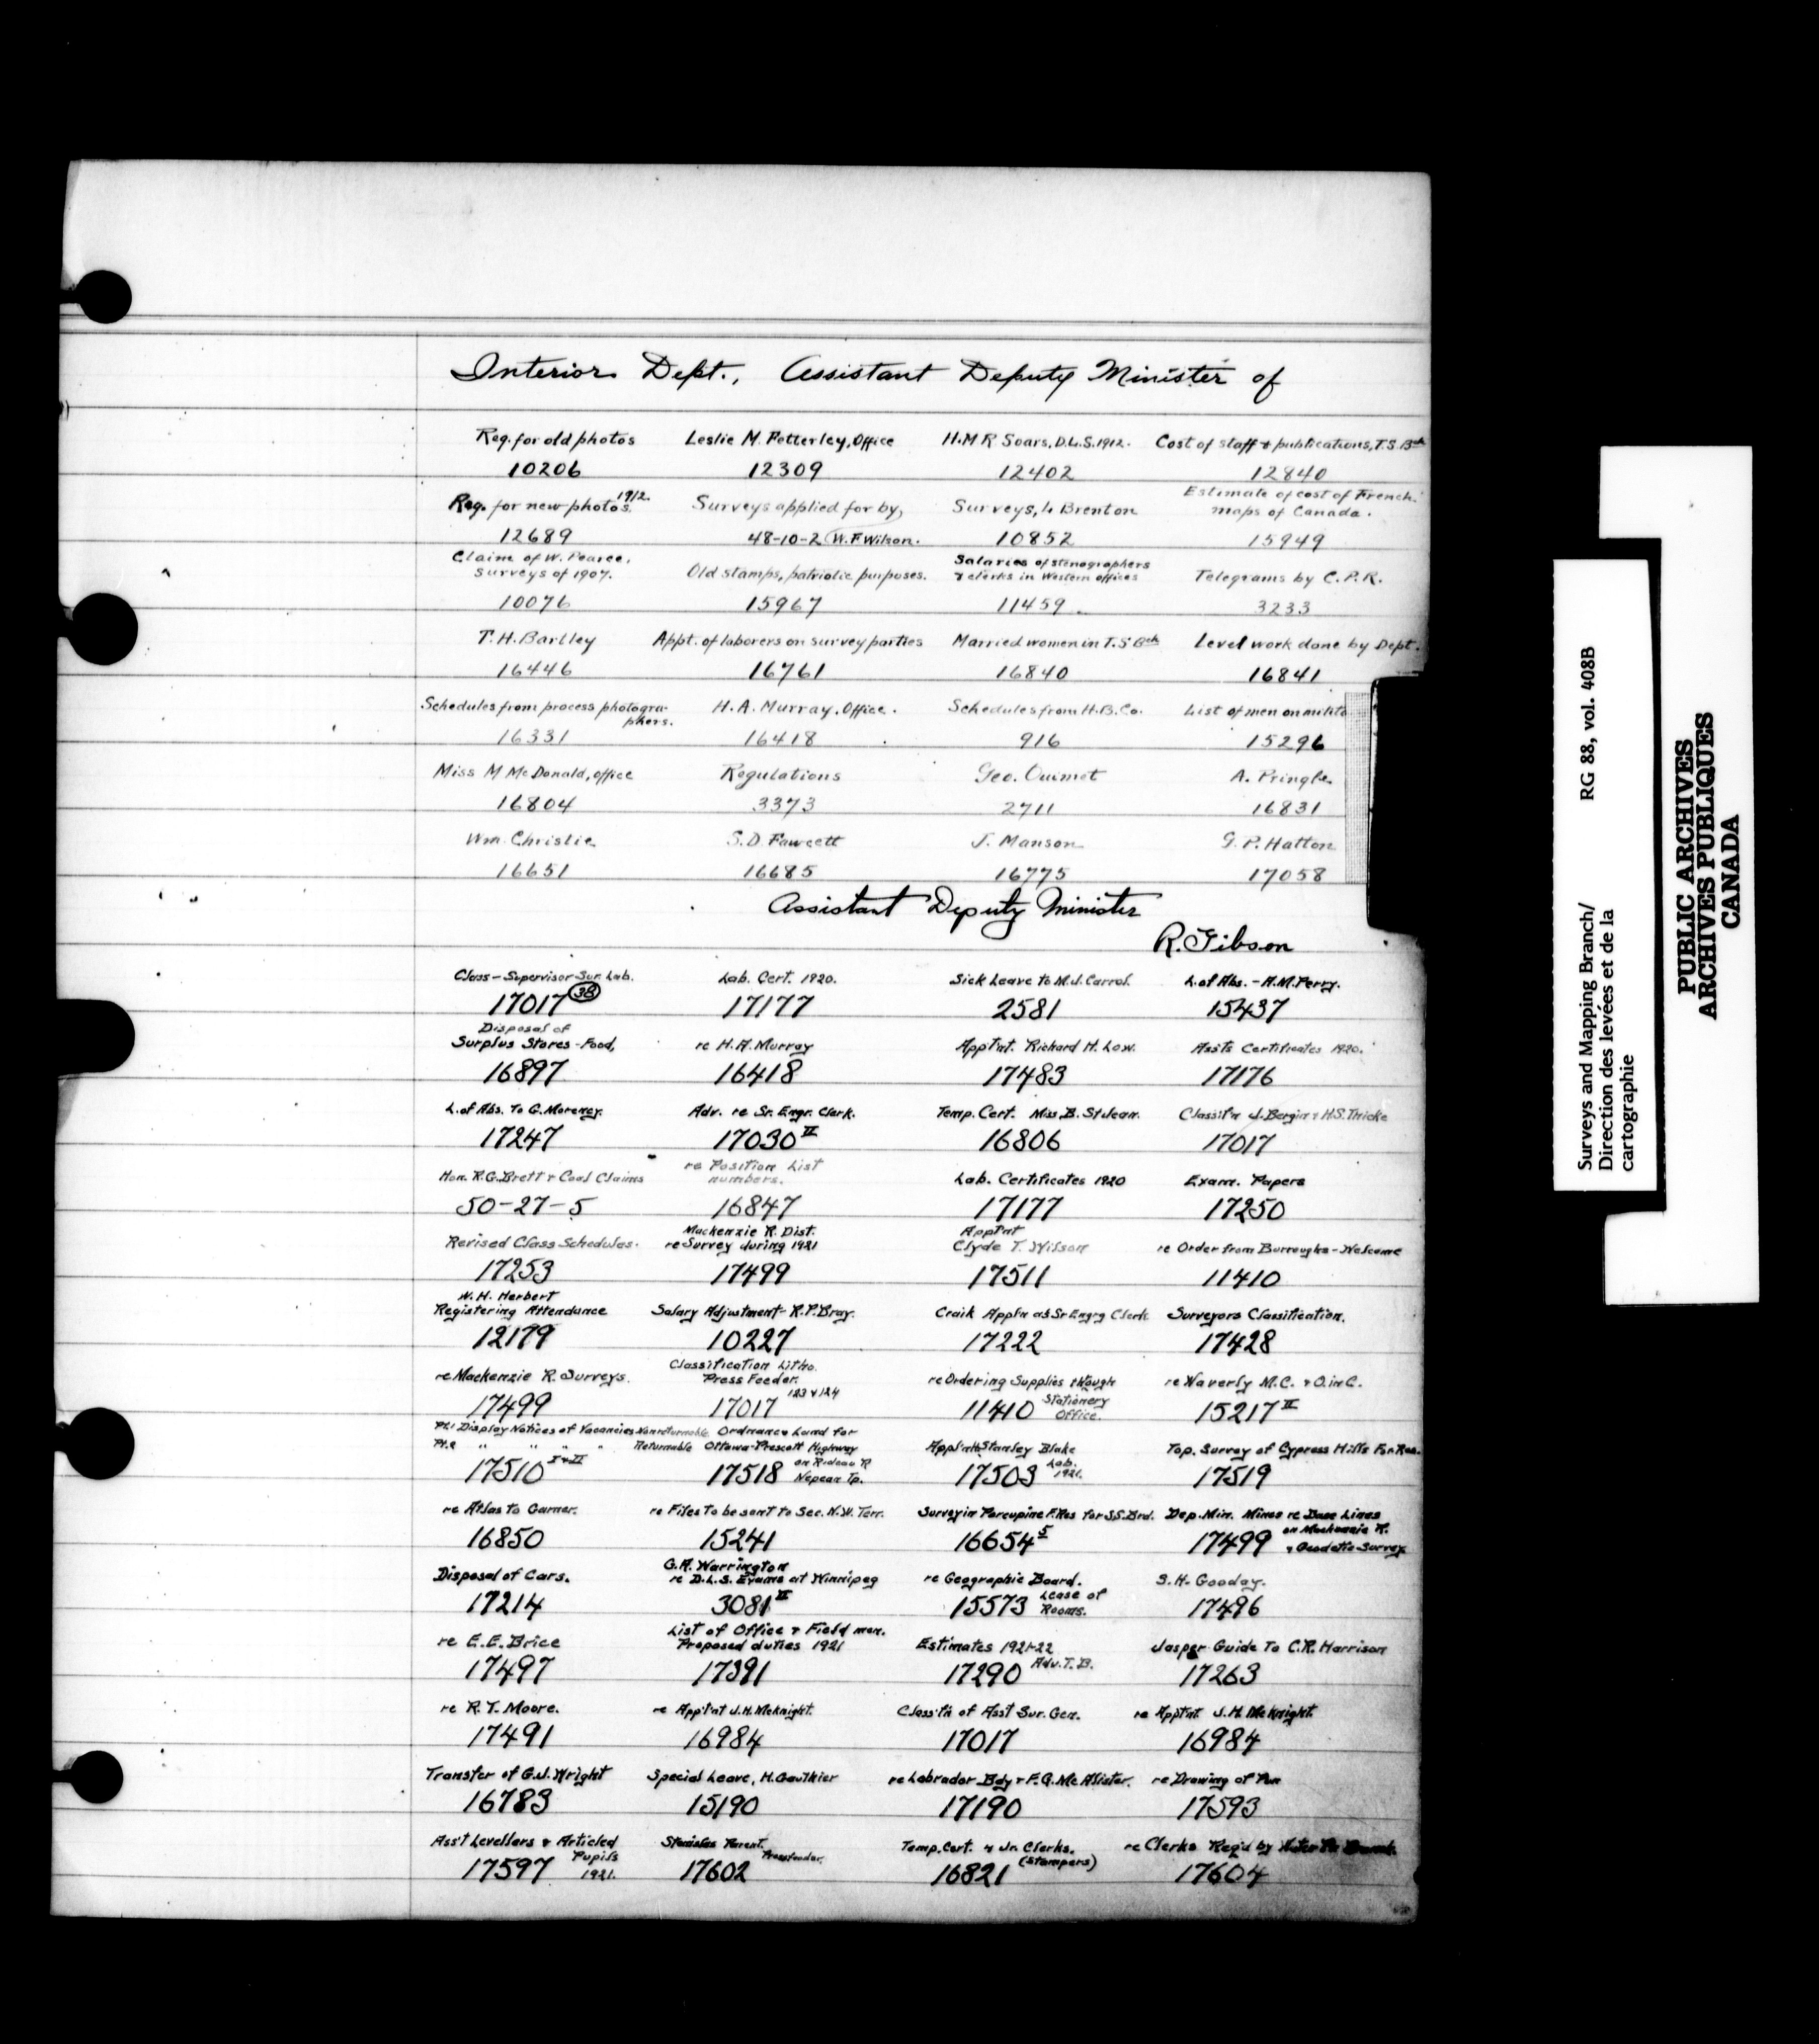 Interior Dept., Assistant Deputy Minister of
Req. for old photos Leslie M. Fetterley, Office H.M R Soars, D.L.S. 1912. Cost of staff & publications, T.S. Bch
10206 12309 12402 12840
Req. for new photos 1912. Surveys applied for by, Surveys, L Brenton Estimate of cost of French maps of Canada.
12689 48-10-2 W.F. Wilson. 10852 15949
Claim of W. Pearce, surveys of 1907. Old stamps, patriotic purposes. Salaries of stenographers & clerks in Western offices Telegrams by C.P.R.
10076 15967 11459 3233
T. H. Bartley Appt. of laborers on survey parties Married women in T.S. Bch Level work done by Dept.
16446 16761 16840 16841
Schedules from process photographers. H. A. Murray, Office. Schedules from H.B. Co. List of men on milita
16331 16418 916 15296
Miss M McDonald, office Regulations Geo. Ouimet A. Pringle
16804 3373 2711 16831
Wm. Christie S.D. Fawcett J. Manson G. P. Hatton
16651 16685 16775 17058
Assistant Deputy Minister
R. Gibson
Class - Supervisor Sur. Lab. Lab. Cert. 1920. Sick Leave to M.J. Carrol. L. of Abs. - A.M. Perry.
17017 3B 17177 2581 15437
Disposal of
Surplus Stores - Food, re H.A. Murray App'tnt. Richard H. Low. Ass'ts Certificates 1920.
16897 16418 17483 17176
L. of Abs. to G. Morency. Adv. re Sr. Engr. Clerk. Temp. Cert. Miss B. St Jean. Classif'n J. Bergin & H.S. Thicke
17247 17030 II 16806 17017
Hon. R.G. Brett & Coal Claims re Position List numbers. Lab. Certificates 1920 Exam. Papers
50-27-5 16847 17177 17250
Revised Class Schedules. Mackenzie R. Dist. re Survey during 1921 App'tnt Clyde T. Wilson re Order from Burroughs - Welcome
17253 17499 17511 11410
W. H. Herbert
Registering Attendance Salary Adjustment - R.P. Bray. Craik App'ln as Sr Engr'g Clerk Surveyors Classification.
12179 10227 17222 17428
re Mackenzie R. Surveys. Classification Litho. Press Feeder. re Ordering Supplies through re Waverly M.C. & O. in C.
17499 17017 123 & 124 11410 Stationery Office. 15217 II
Pt. 1 Display Notices of Vacancies Nonreturnable Ordnance Land for
Pt. 2 " " " " Returnable Ottawa-Prescott Highway App'tnt Stanley Blake Top. Survey of Cypress Hills For. Res.
17510 I & II 17518 on Rideau R Nepean Tp. 17503 Lab. 1921. 17519
re Atlas to Garner. re Files to be sent to Sec. N.W. Terr. Survey in Porcupine F. Res for S.S. Brd. Dep. Min. Mines re Base Lines
16850 15241 16654 5 17499 on Mackenzie R. & Geodetic Survey
Disposal of Cars. G.A. Warrington re D.L.S. Exams at Winnipeg re Geographic Board. S.H. Gooday.
17214 3081 II 15573 Lease of Rooms. 17496
re E.E. Brice List of Office & Field men. Proposed duties 1921 Estimates 1921-22 Jasper Guide to C.R. Harrison
17497 17391 17290 Adv. T.B. 17263
re R. T. Moore. re App't'nt J.H. McKnight. Class'f'n of Asst Sur. Gen. re App'tnt J.H. McKnight.
17491 16984 17017 16984
Transfer of G.J. Wright Special Leave, H. Gauthier re Labrador Bdy & F.G. McAlister. re Drawing of
16783 15190 17190 17593
Ass't Levellers & Articled Pupils Stanislas Parent. Pressfeeder. Temp. Cert. 4 Jr. Clerks. (Stampers) re Clerks Req'd by
17597 1921. 17602 16821 17604
Surveys and Mapping Branch/ RG 88, vol. 408B
Direction des levées et de la
cartographie
PUBLIC ARCHIVES
ARCHIVES PUBLIQUES
CANADA